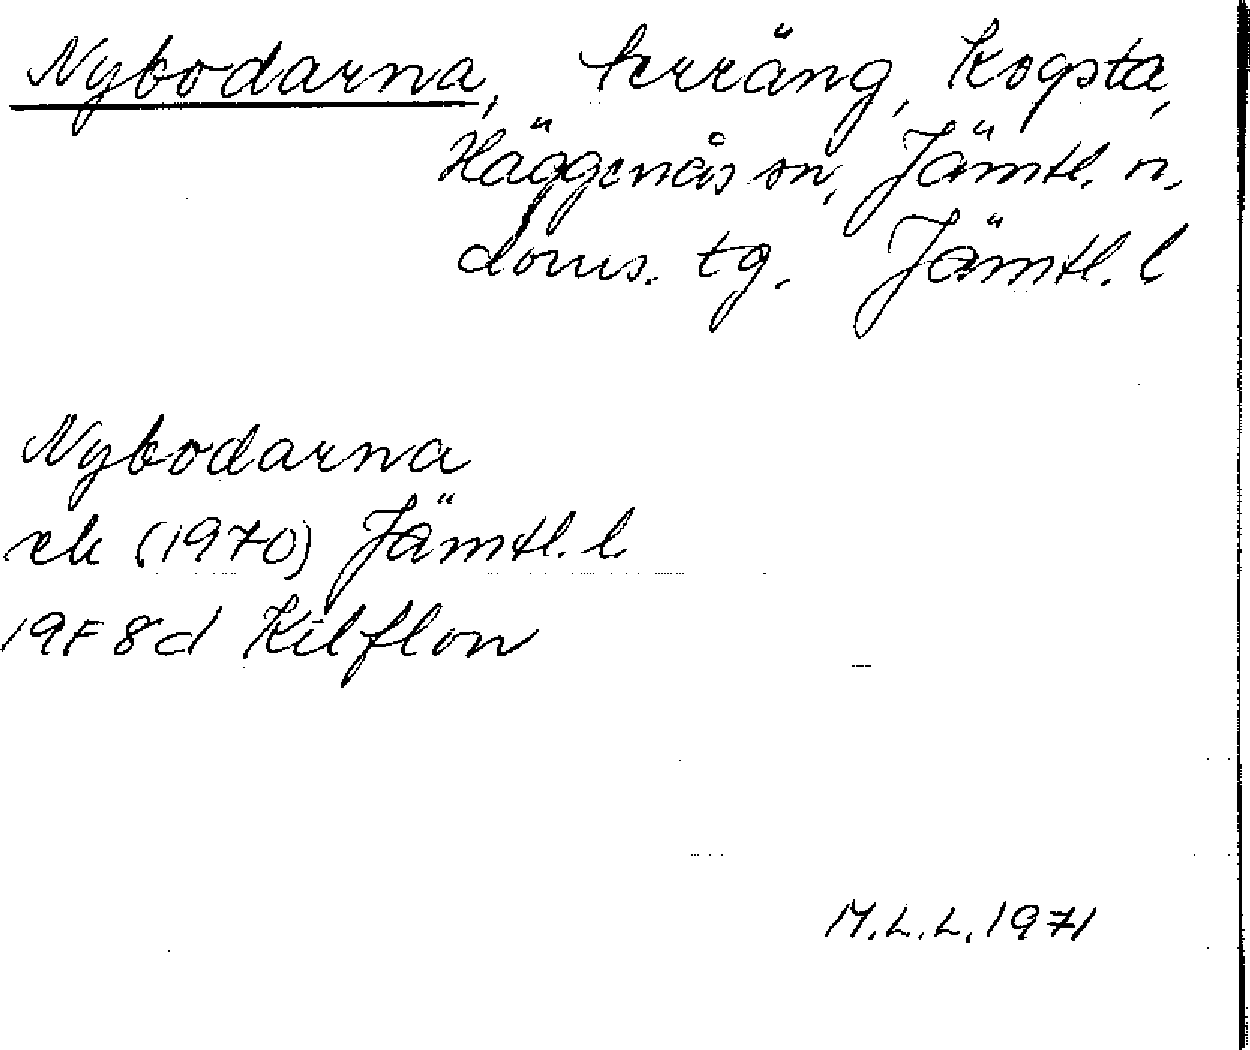 Nybodarna, terräng, Kogsta,
Häggenås sn, Jämtl. n.
doms. tg. Jämtl. l
Nybodarna
ek (1970) Jämtl. l.
19F 8d Kilflon
M.L.L. 1971